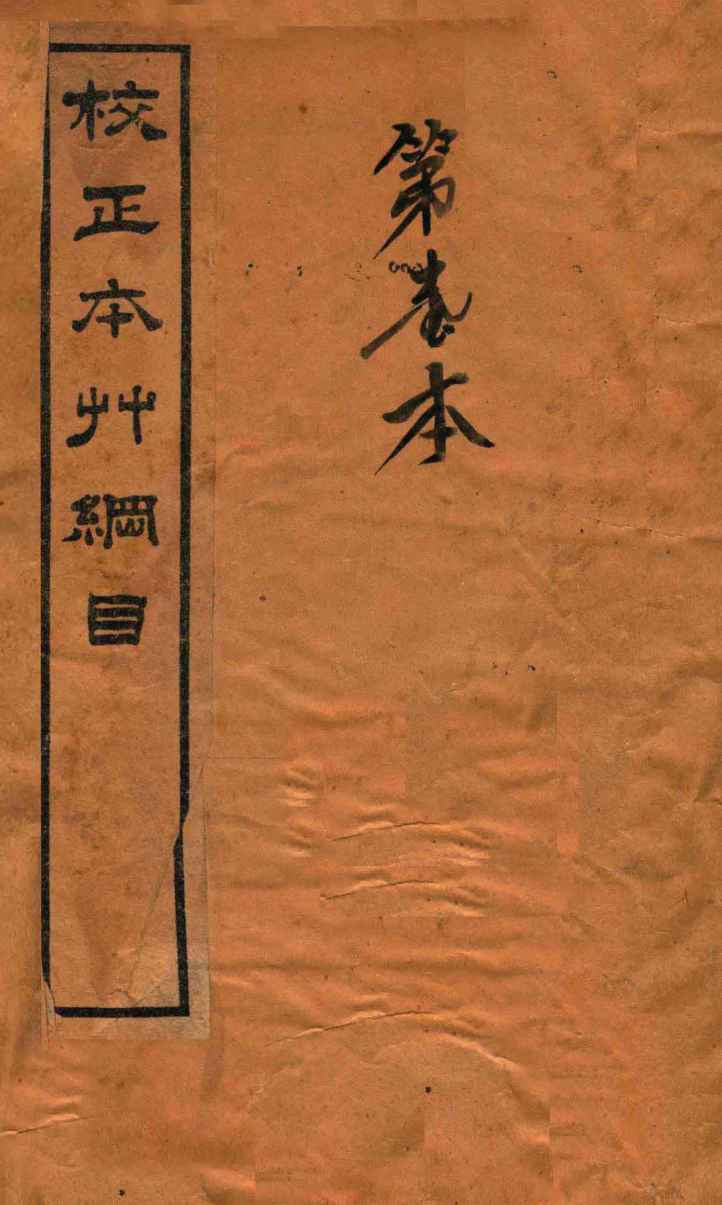 第壹本
校正本艸綱目